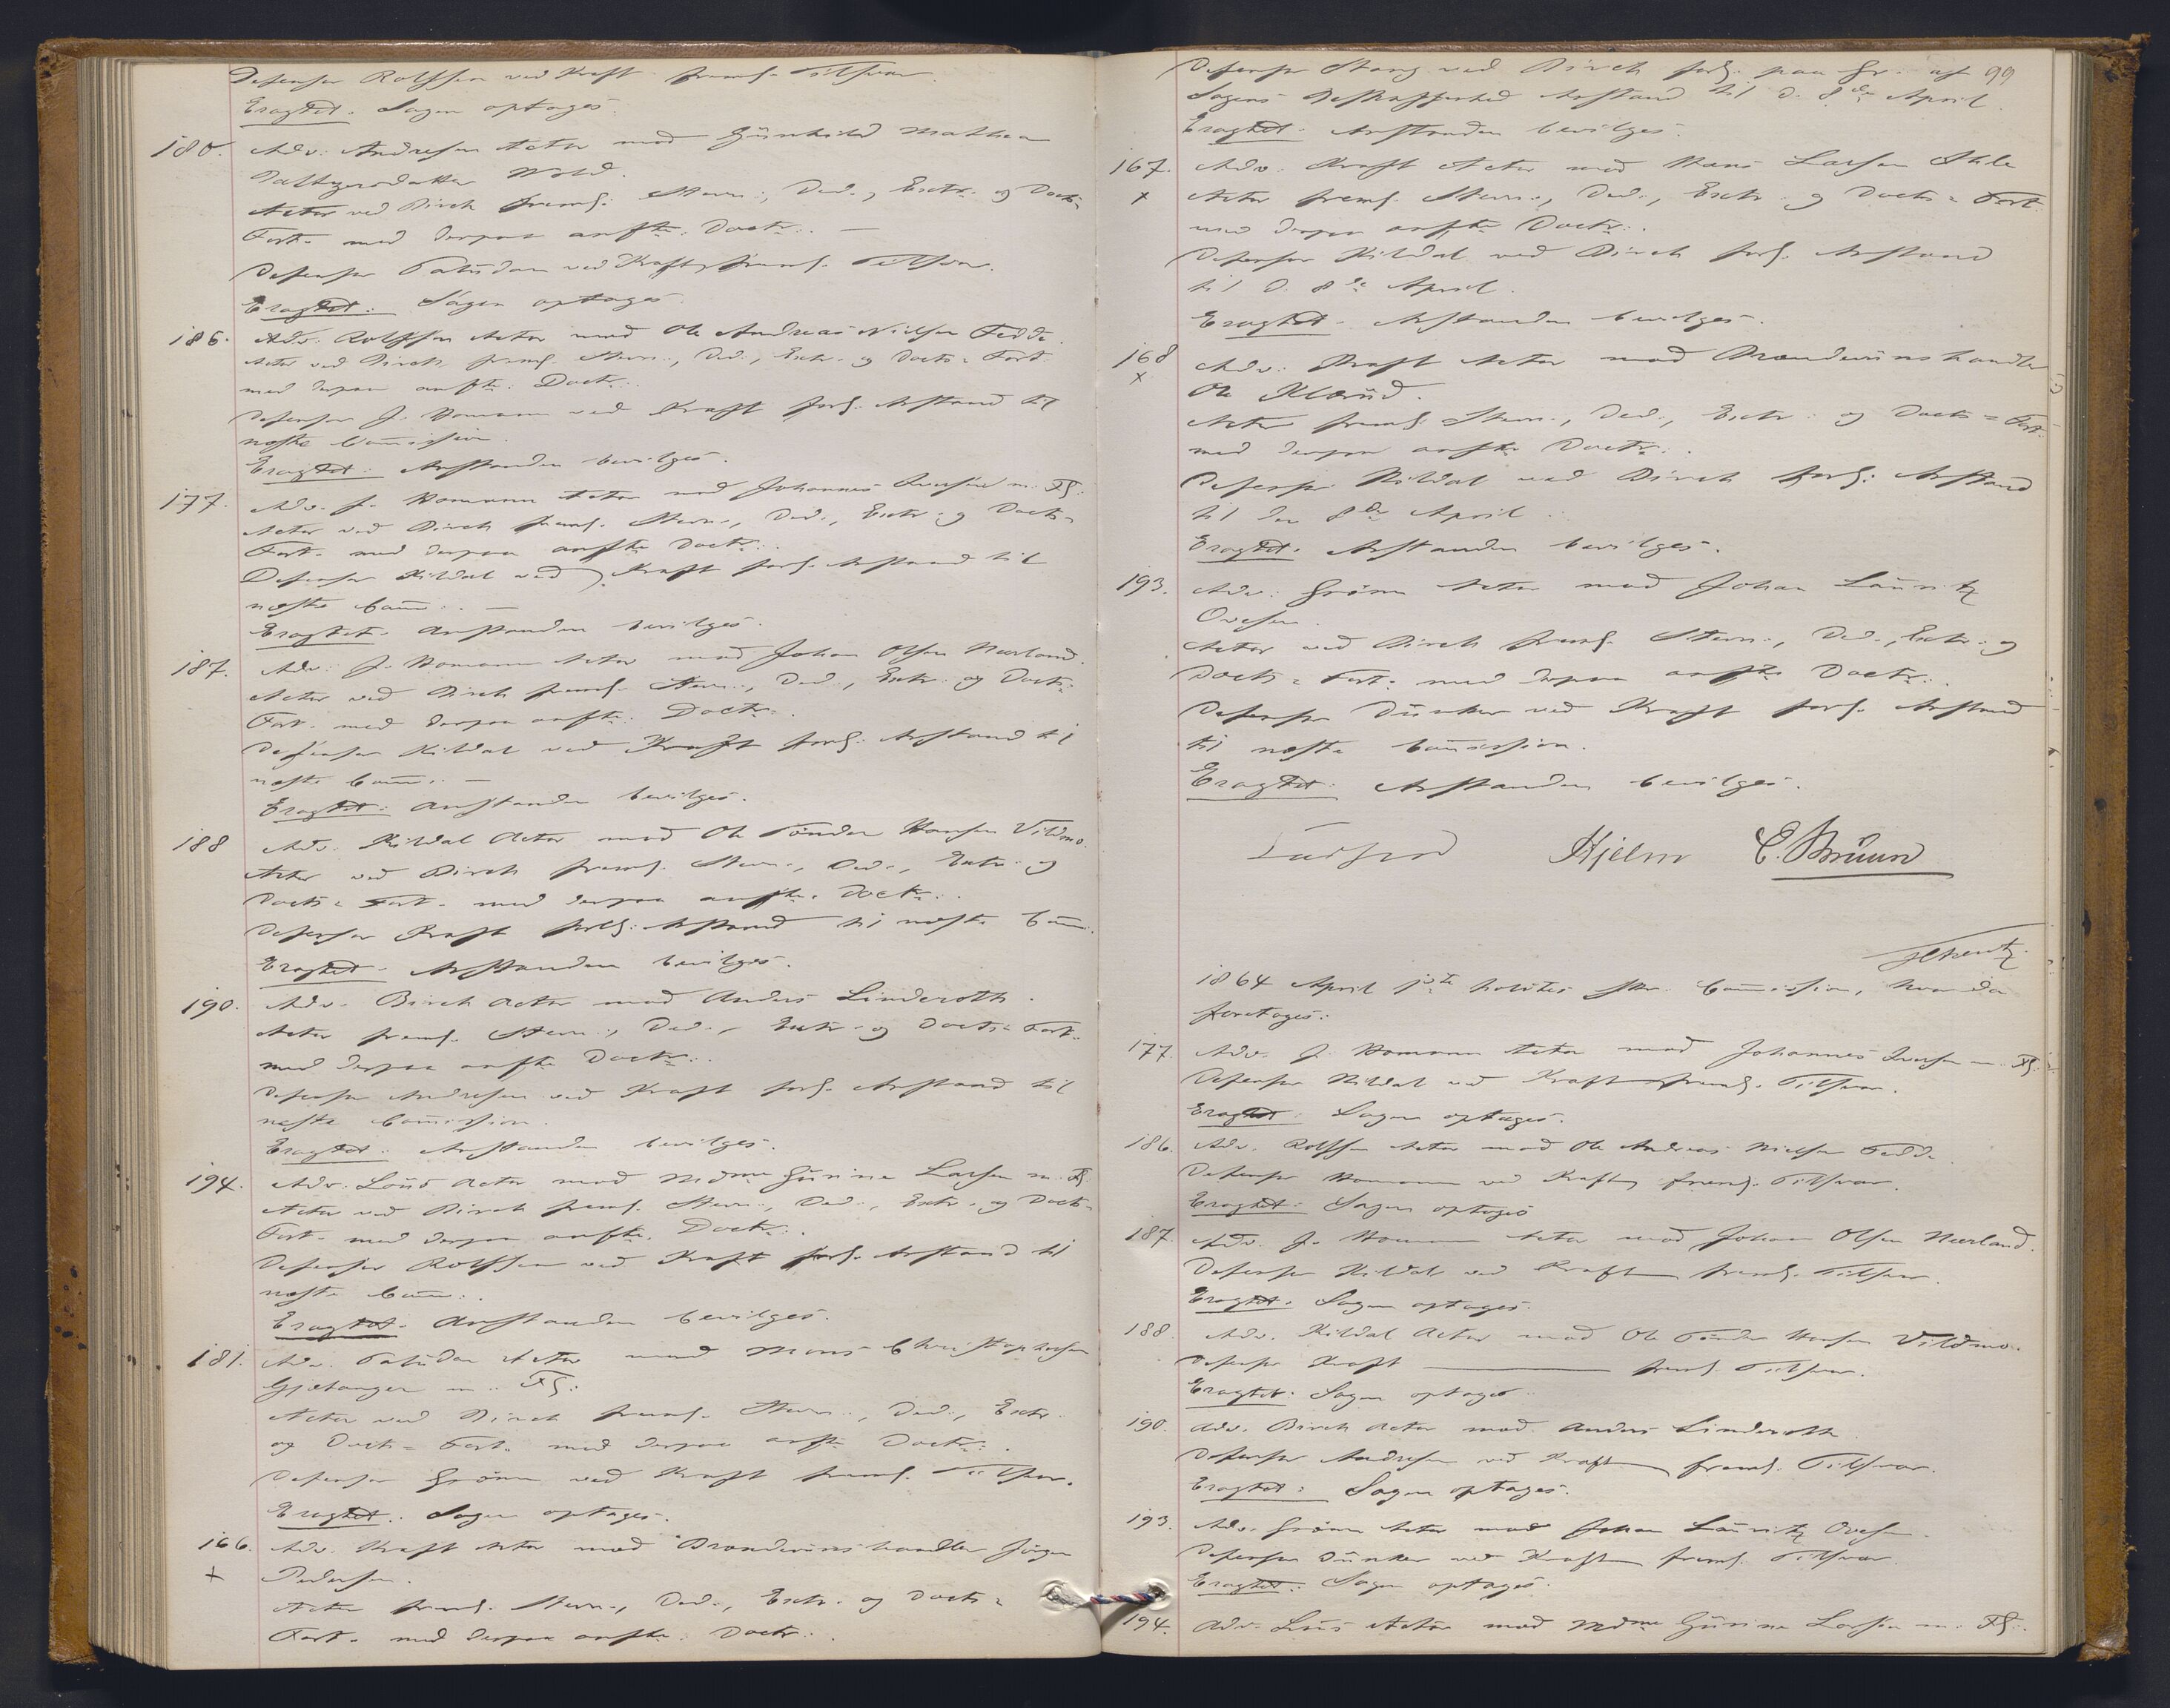 Defensor Rolfsen ved Kraft freml. Tilsvar.
Eragtet: Sagen optages.
180. Adv. Andresen Actor mod Gunhild Mathea
Actor ved Birch freml. Stevn., Ded., Extr. og Docts=
Fort. med derpaa anfte. Doctr. —
Defensor Paludan ved Kraft freml. Tilsvar.
Eragtet: Sagen optages.
186. Adv. Rolfsen Actor mod Ole Andreas Nielsen Fedde.
Actor ved Birch freml. Stevn., Ded., Extr. og Docts= Fort.
med derpaa anfte. Doctr.
Defensor J. Homann ved Kraft forl. Anstand til
næste Comission.
Eragtet: Anstanden bevilges.
177. Adv. J. Homann Actor mod Johannes Iversen m. Fl.
Actor ved Birch freml. Stevn., Ded., Extr. og Docts=
Fort. med derpaa anfte Doctr.
Defensor Kildal ved Kraft forl. Anstand til
næste Com. —
Eragtet. Anstanden bevilges.
187. Adv. J. Homann Actor mod Johan Olsen Neerland.
Actor ved Birch freml. Stevn., Ded., Extr. og Docts=
Fort. med derpaa anfte. Doctr.
Defensor Kildal ved Kraft forl. Anstand til
næste Com. —
Eragtet: Anstanden bevilges.
188 Adv. Kildal Actor mod Ole Tønder Hansen Vildmo.
Actor ved Birch freml. Stevn., Ded., Extr. og
Docts= Fort. med derpaa anfte. Doctr.
Defensor Kraft forl. Anstand til næste Com.
Eragtet. Anstanden bevilges.
190. Adv. Birch Actor mod Anders Linderoth.
Actor freml. Stevn., Ded., Extr. og Docts= Fort.
med derpaa anfte Doctr.
Defensor Andresen ved Kraft forl. Anstand til
næste Comission.
Eragtet: Anstanden bevilges.
194. Adv. Lous Actor mod Mdme Gurine Larsen m. Fl.
Actor ved Birch freml. Stevn., Ded., Extr. og Docts=
Fort. med derpaa anfte. Doctr.
Defensor Rolfsen ved Kraft forl. Anstand til
næste Com.
Eragtet. Anstanden bevilges.
181. Adv. Paludan Actor mod Mons Christophersen
Gjetanger m. Fl.
Actor ved Birch freml. Stevn., Ded., Extr.
og Docts= Fort. med derpaa anfte Doctr.
Defensor Grønn ved Kraft freml. Tilsvar.
Eragtet: Sagen optages.
166. Adv. Kraft Actor mod Brændeviinshandler Jørgen
+ Pedersen.
Actor freml. Stevn., Ded., Extr. og Docts=
Fort. med derpaa anfte. Doctr.
99
Defensor Stang ved Birch forl. paa Gr. af
Sagens Beskaffenhed Anstand til d. 8de April.
Eragtet: Anstanden bevilges.
167. Adv. Kraft Actor mod Hans Larsen
x Actor freml. Stevn., Ded., Extr. og Docts= Fort.
med derpaa anfte Doctr.
Defensor Kildal ved Birch forl. Anstand
til d. 8de April.
Eragtet. Anstanden bevilges.
168 Adv. Kraft Actor mod Brændeviinshandler
x Ole Klerud.
Actor freml. Stevn., Ded., Extr. og Docts= Fort.
med derpaa anfte Doctr.
Defensor Kildal ved Birch forl. Anstand
til den 8de April.
Eragtet: Anstanden bevilges.
193. Adv. Grønn Actor mod Johan Lauritz
Ovesen.
Actor ved Birch freml. Stevn., Ded., Extr. og
Docts= Fort. med derpaa anfte Doctr.
Defensor Dunker ved Kraft forl. Anstand
til næste Comission.
Eragtet: Anstanden bevilges.
Hjelm C. Bruun
1864 April 1ste holdtes Comission, hvor da
foretoges:
177. Adv. J. Homann Actor mod Johannes Iversen m. Fl.
Defensor Kildal ved Kraft freml. Tilsvar.
Eragtet: Sagen optages.
186. Adv. Rolfsen Actor mod Ole Andreas Nielsen Fedde.
Defensor Homann ved Kraft freml. Tilsvar.
Eragtet: Sagen optages
187. Adv. J. Homann Actor mod Johan Olsen Neerland.
Defensor Kildal ved Kraft freml. Tilsvar.
Eragtet. Sagen optages.
188. Adv. Kildal Actor mod Ole Tønder Hansen Vildmo.
Defensor Kraft freml. Tilsvar.
Eragtet: Sagen optages.
190. Adv. Birch Actor mod Anders Linderoth.
Defensor Andresen ved Kraft freml. Tilsvar.
Eragtet: Sagen optages.
193. Adv. Grønn Actor mod Johan Lauritz Ovesen.
Defensor Dunker ved Kraft freml. Tilsvar.
Eragtet: Sagen optages.
194. Adv. Lous Actor mod Mdme Gurine Larsen m. Fl.